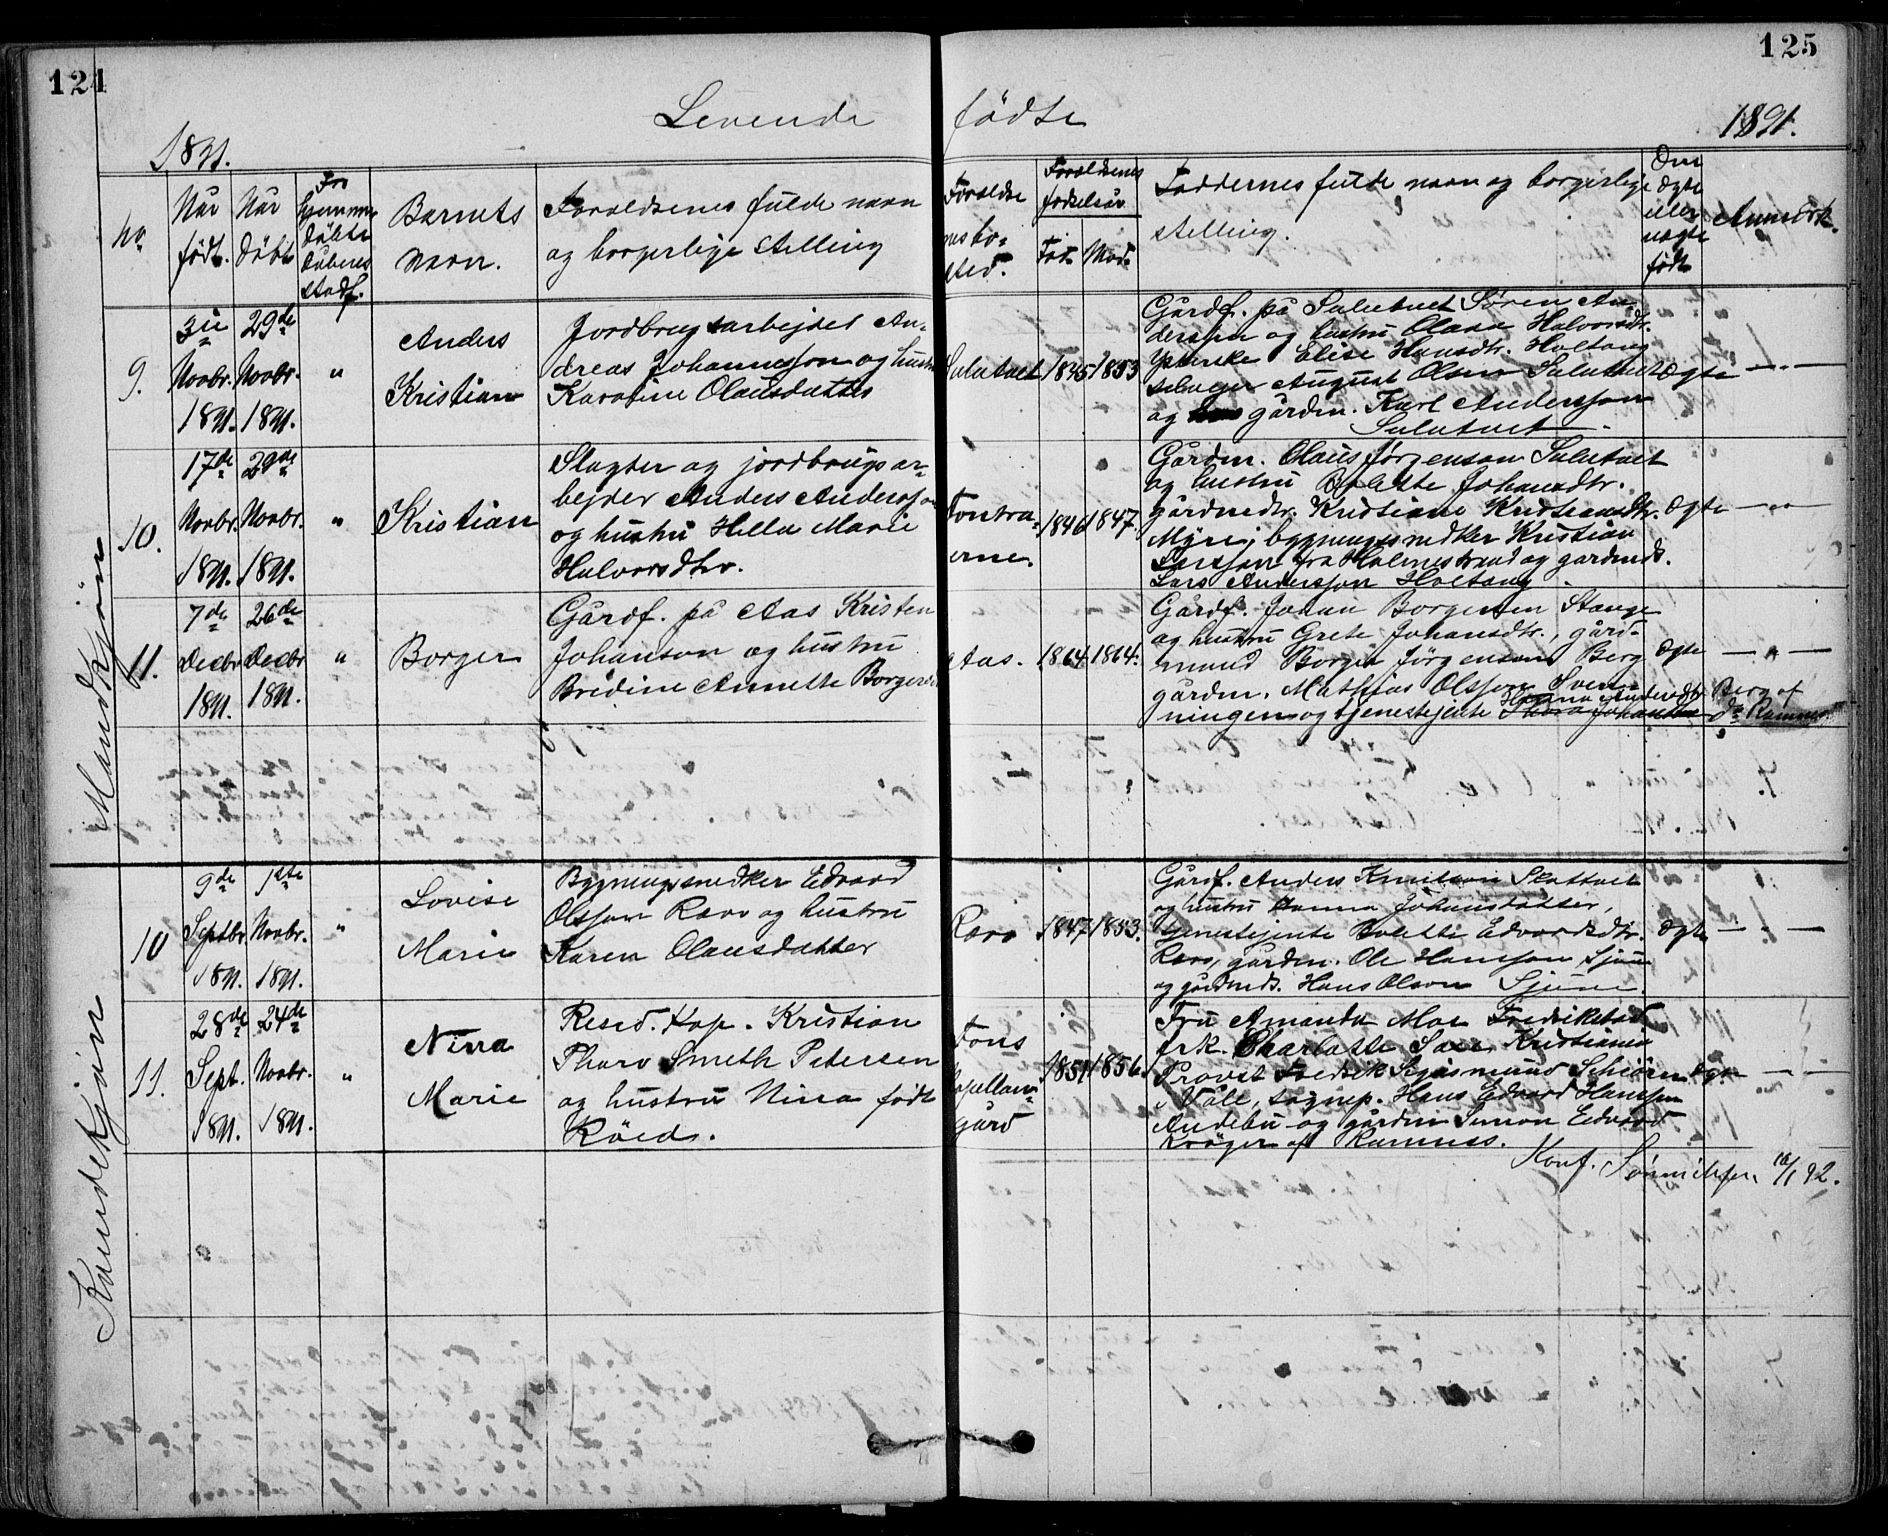 124
125
Levende fødte
1891.
1891.
No
Når født.
Når Døbt
Barnets navn.
Forældrenes fulde navn og borgerlige stilling
Forældrenes bosted.
Forældrenes fødselsår
Fad. Mod.
Faddernes fulde navn og borgerlige stilling.
Om ægte eller uægte født
Anmærk.
Mandkjøn
9.
Novbr. 1891.
29de Novbr. 1891.
"
Anders
Kristian
Jordbrugsarbejder An-
dreas Johannesson og hustru
Karoline Olausdatter
1845 1853
Gårdf. på Søren An-
dersson og hustru Halvorsdtr.
Elise Hansdtr. Holtang
August Olsen
og gårdm. Karl Andersson
Ægte
— " —
10.
17de Novbr. 1891.
29de Novbr. 1891.
"
Kristian
Slagter og jordbrugsar-
bejder Anders Andersson
og hustru Hella Marie
Halvorsdtr.
1846 1847.
Gårdm. Olaus Jørgenson
og hustru Johansdtr.
gårdmdtr. Kristiane Kristiansdtr.
Myre, bygningssnedker Kristian
fra Holmestrand og gårdmds.
Lars Andersson Holtang.
Ægte
— " —
11.
7de Decbr. 1891.
26de Decbr. 1891.
"
Borger
Gårdf. på Aas Kristen
Johanson og hustru
Bredine Annette
Aas.
1864 1864.
Gårdf. Johan Borgersen Stange
og hustru Grete Johansdtr., gård-
mand Borger Jørgensen Berg
gårdm. Mathias Olsson Sven-
ningen og tjenestejente
Ægte
— " —
Berg af
Ramnes
Kvindekjøn
10
9de Septbr. 1891.
1ste Novbr. 1891.
"
Lovise
Marie
Bygningssnedker Edvard
Olsson og hustru
Karen Olausdatter
1847 1853.
Gårdf. Anders Knutson
og hustru Johansdatter,
tjenestejente Bolette Edvardsdtr.
gårdm. Ole Hansson
og gårdmds. Hans Olson
Ægte
— " —
11.
28de Sept. 1891.
24de Novbr. 1891.
"
Nina
Marie
Resid. Kap. Kristian
Smith Petersen
og hustru Nina født
Røed.
Fons
kapellan-
gård
1851 1856.
Fru Amanda Moe Fredrikstad
frk. Charlotte Kristiania
Provst Fredrik Sigismund
i Våle, sognep. Hans Edvard Hanssen
Andebu og gårdm Simon Edvard
Krøger af Ramnes.
Ægte
— " —
Konf. 92.